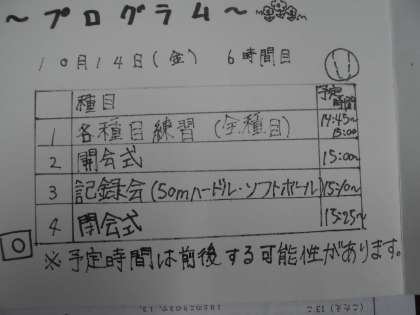 ～プログラム～
10月14日(金) 6時間目
種目 予定時間
1 各種目練習 (全種目) 14:45～15:00
2 開会式 15:00～
3 記録会(50mハードル・ソフトボール) 15:10～
4 閉会式 15:25～
※予定時間は前後する可能性があります。